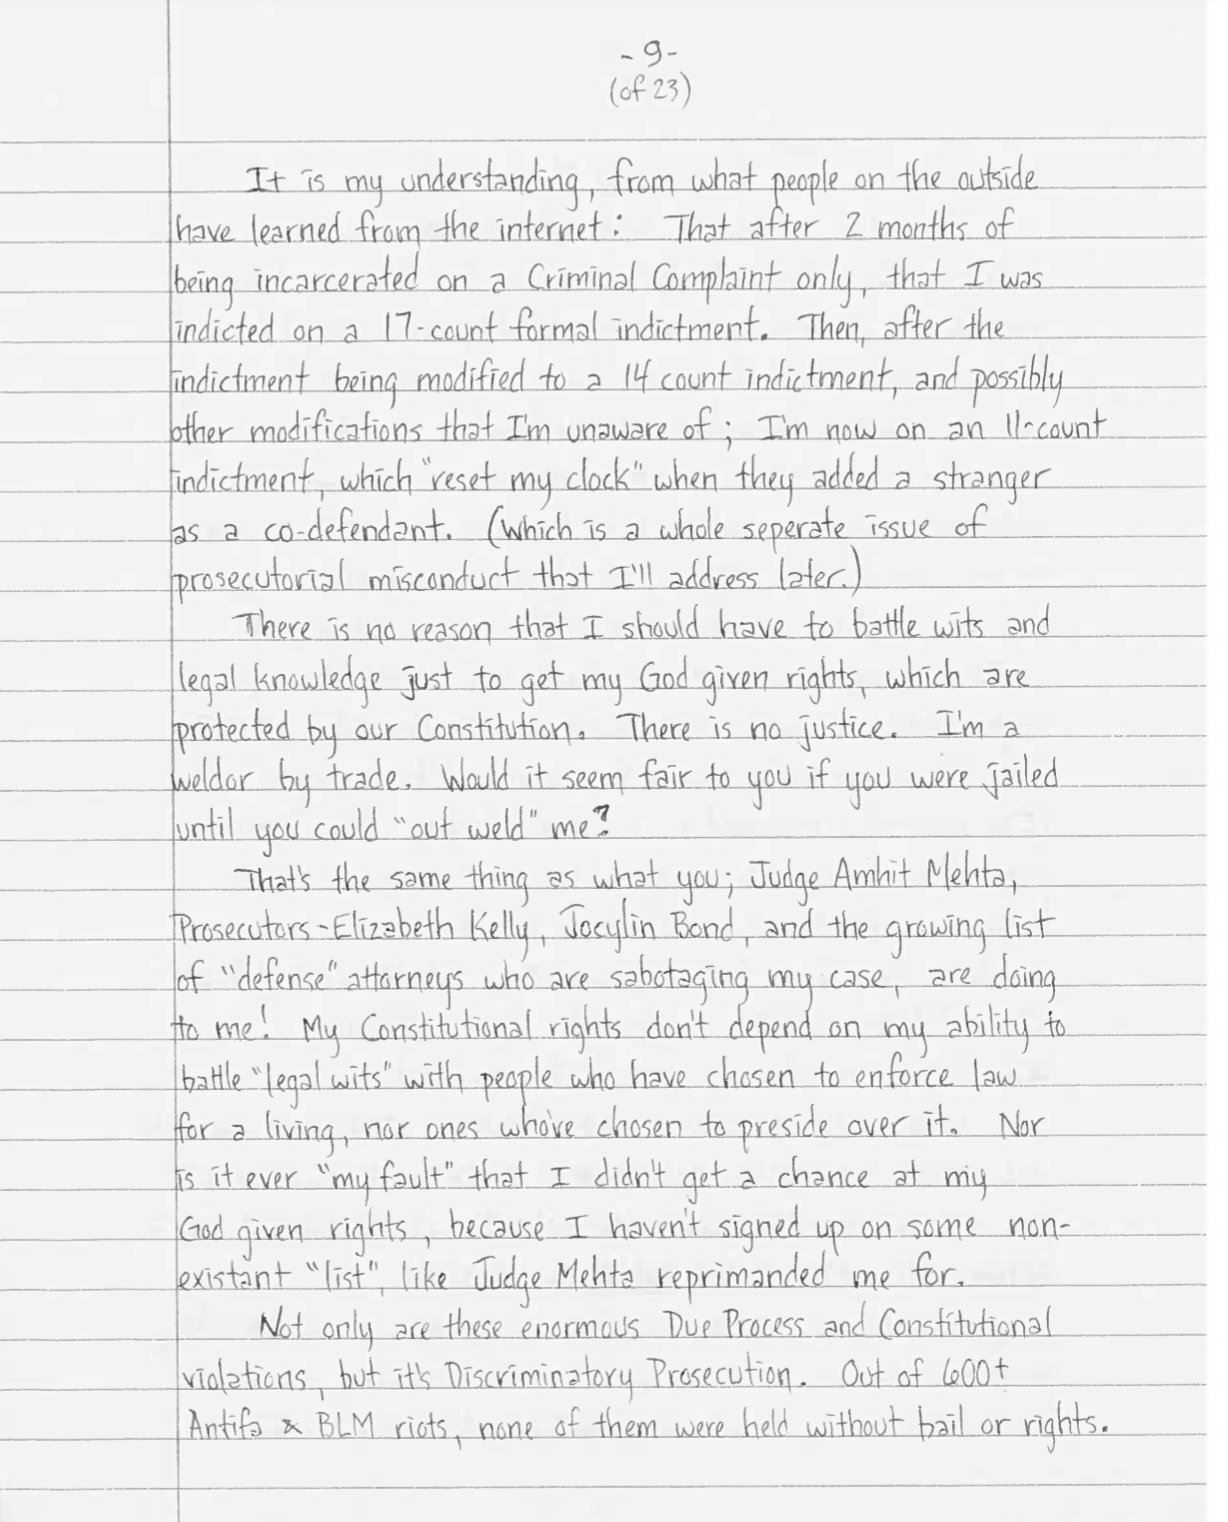 -9-
(of 23)
It is my understanding, from what people on the outside
have learned from the internet: That after 2 months of
being incarcerated on a Criminal Complaint only, that I was
indicted on a 17-count formal indictment. Then, after the
indictment being modified to a 14 count indictment, and possibly
other modifications that I'm unaware of; I'm now on an 11-count
indictment, which "reset my clock" when they added a stranger
as a co-defendant. (Which is a whole seperate issue of
prosecutorial misconduct that I'll address later.)
There is no reason that I should have to battle wits and
legal knowledge just to get my God given rights, which are
protected by our Constitution. There is no justice. I'm a
weldor by trade. Would it seem fair to you if you were jailed
until you could "out weld" me?
That's the same thing as what you; Judge Amhit Mehta,
Prosecutors-Elizabeth Kelly, Jocylin Bond, and the growing list
of "defense" attorneys who are sabotaging my case, are doing
to me! My Constitutional rights don't depend on my ability to
battle "legal wits" with people who have chosen to enforce law
for a living, nor ones who've chosen to preside over it. Nor
is it ever "my fault" that I didn't get a chance at my
God given rights, because I haven't signed up on some non-
existant "list", like Judge Mehta reprimanded me for.
Not only are these enormous Due Process and Constitutional
violations, but it's Discriminatory Prosecution. Out of 600+
Antifa & BLM riots, none of them were held without bail or rights.